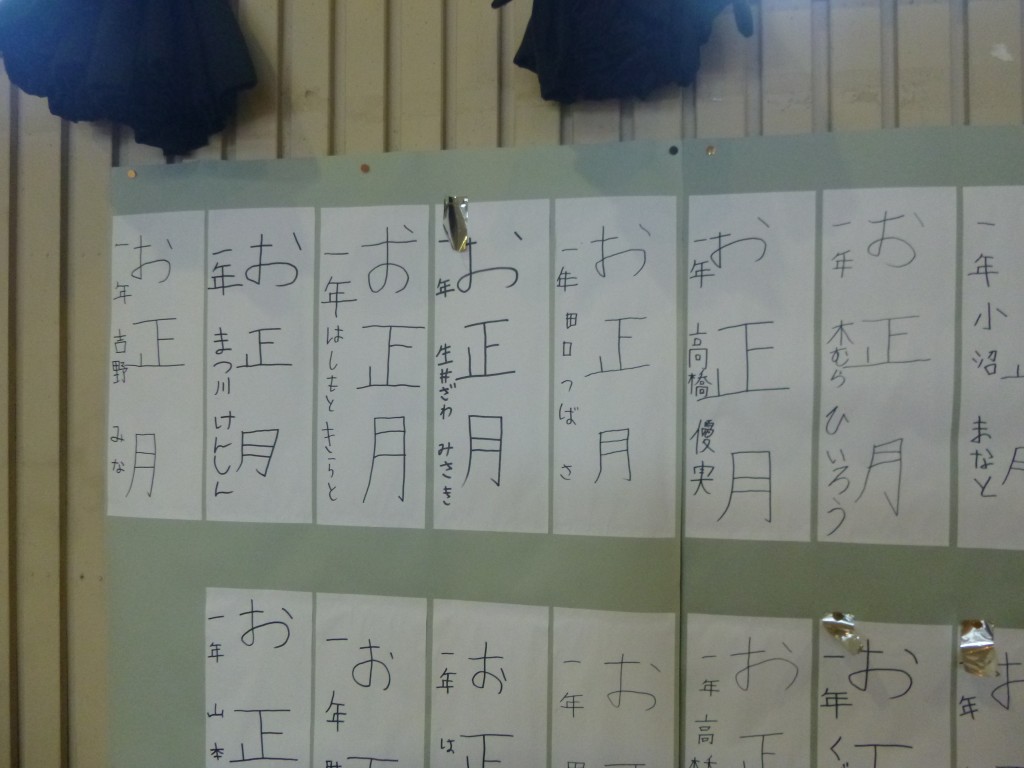 一年 小沼 まなと
お正月
一年 木むら ひいろう
お正月
一年 高橋 優実
お正月
一年 田口 つばさ
お正月
一年 生井ざわ みさき
お正月
一年 はしもときらと
お正月
一年 まつ川 けんしん
お正月
一年 吉野 みな
お
年
お
一年 ぐ
お正
一年 高橋
お
一年
お正
一年 は
お
一年
お正
一年 山本